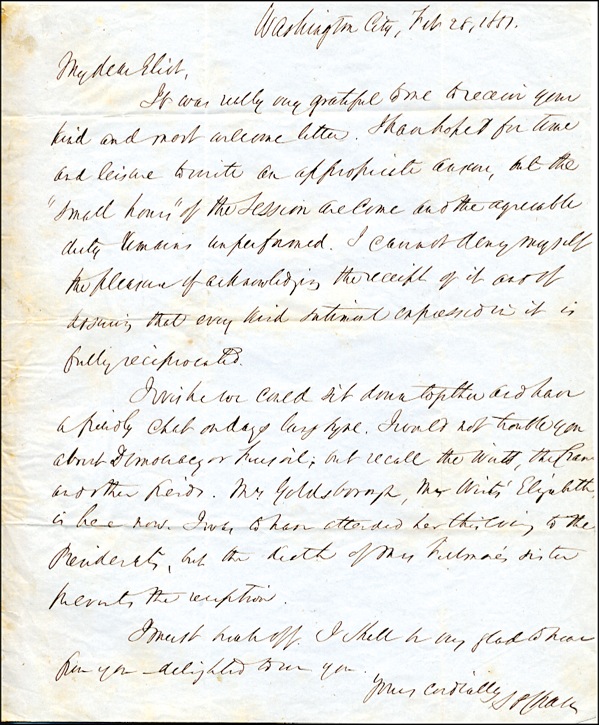 Washington City, Feb 28, 1851.
My dear Eliot,
It was really very grateful to me to receive your
kind and most welcome letter. I have hoped for time
and leisure to write an appropriate answer, but the
"small hours" of the Session are come and the agreeable
duty remains unperformed. I cannot deny myself
the pleasure of acknowledging the receipt of it and of
assuring that every kind sentiment expressed in it is
fully reciprocated.
I wish we could sit down together and have
a friendly chat on days lang syne. I would not trouble you
about Democracy or free soil; but recall the Wirts, the
and other friends. Mrs Goldsborough, Mr Wirts' Elizabeth,
is here now. I was to have attended her this evening to the
Presidents, but the death of Mrs Fillmore's sister
prevents the reception.
I must break off. I shall be very glad to hear
from you — delighted to see you.
Yours cordially
S P Chase